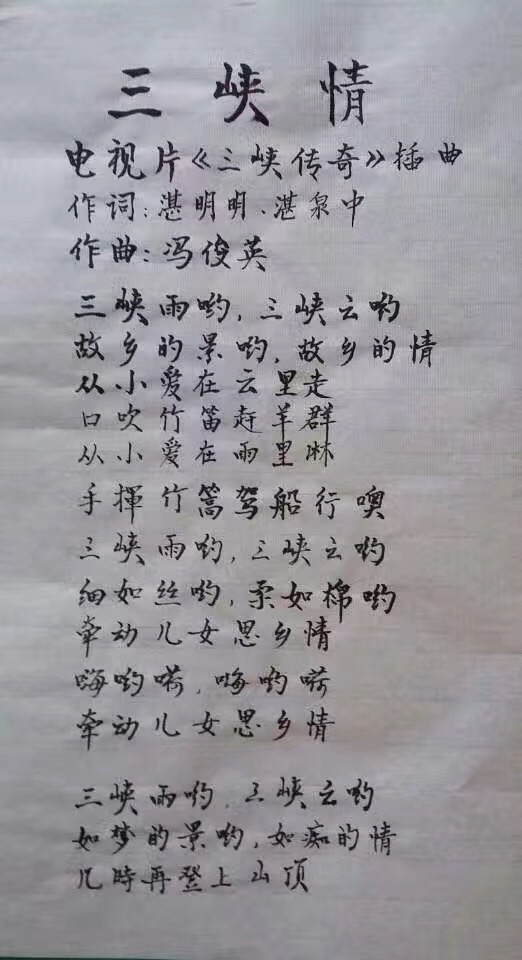 三峡情
电视片《三峡传奇》插曲
作词:湛明明、湛泉中
作曲:冯俊英
三峡雨哟,三峡云哟
故乡的景哟,故乡的情
从小爱在云里走
口吹竹笛赶羊群
从小爱在雨里淋
手揮竹篙驾船行噢
三峡雨哟,三峡云哟
细如丝哟,柔如棉哟
牵动儿女思乡情
嗨哟嗬,嗨哟嗬
牵动儿女思乡情
三峡雨哟,三峡云哟
如梦的景哟,如痴的情
几時再登上山顶